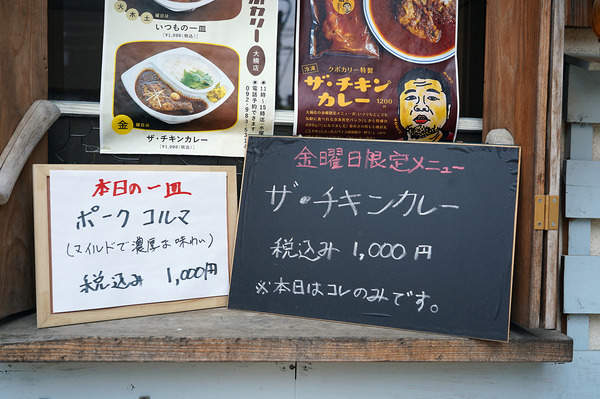 火 木 土 曜日は
いつもの一皿
[¥1,000(税込)]
カリー
大橋店
11時〜15時
電話予約できます
金 曜日は
ザ・チキンカレー
[¥1,000(税込)]
冷凍
クボカリー特製
ザ・チキン
カレー
1200円
本日の一皿
ポーク コルマ
(マイルドで濃厚な味わい)
税込み 1,000円
金曜日限定メニュー
ザ・チキンカレー
税込み 1,000円
※本日はコレのみです。